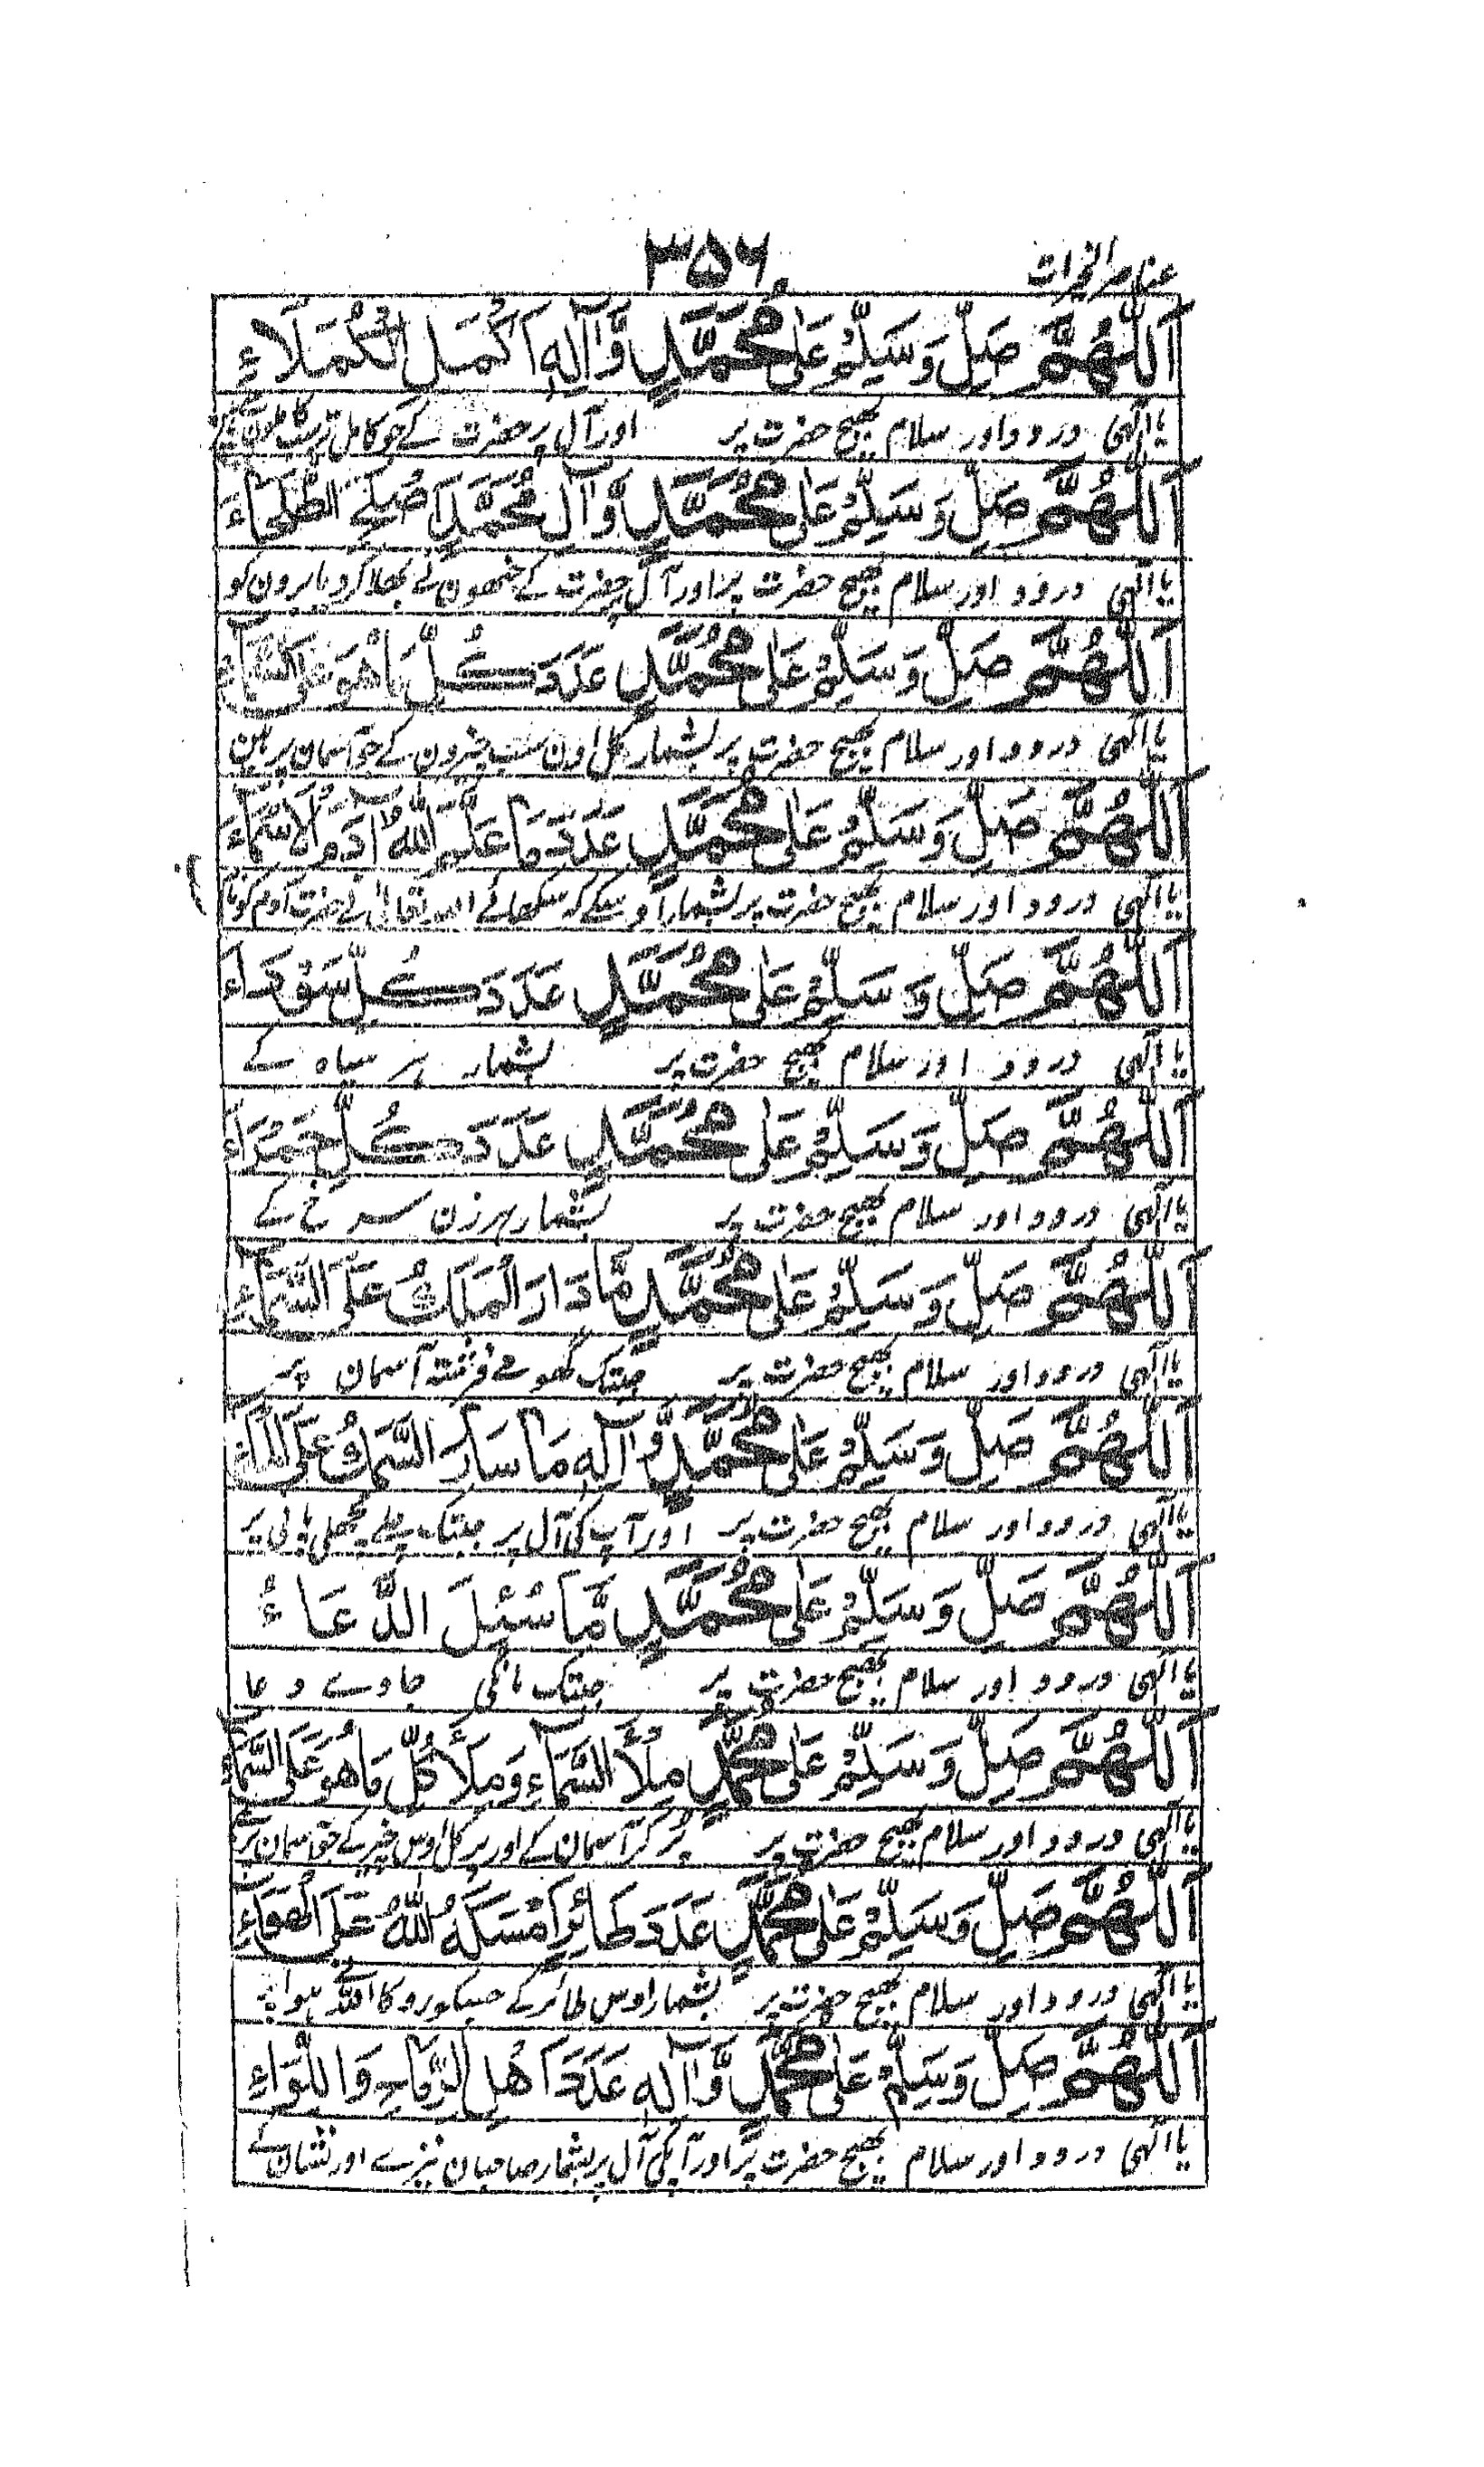 ۳۵۶
عناصر الخیرات
اَللّٰهُمَّ صَلِّ وَسَلِّمْ عَلٰی مُحَمَّدٍ وَّاٰلِهٖ اَكْمَلِ الْكُمَلَاءِ
یا الٰہی درود اور سلام بھیج حضرت پر اور آل پر حضرت کے جو کامل تر سب کاملوں کے
اَللّٰهُمَّ صَلِّ وَسَلِّمْ عَلٰی مُحَمَّدٍ وَّاٰلِ مُحَمَّدٍ
یا الٰہی درود اور سلام بھیج حضرت پر اور آل پر حضرت کے جنھون نے بھلا کر دیا برون کو
اَللّٰهُمَّ صَلِّ وَسَلِّمْ عَلٰی مُحَمَّدٍ عَدَدَ كُلِّ مَا هُوَ عَلَی السَّمَاءِ
یا الٰہی درود اور سلام بھیج حضرت پر بشمار کل اون سب چیزون کے جو آسمان پر ہین
اَللّٰهُمَّ صَلِّ وَسَلِّمْ عَلٰی مُحَمَّدٍ عَدَدَ مَا عَلَّمَ اللّٰهُ اٰدَمَ الْاَسْمَاءَ
یا الٰہی درود اور سلام بھیج حضرت پر بشمار اوسکے کہ سکھائے اللہ تعالیٰ نے حضرت آدم کو نام
اَللّٰهُمَّ صَلِّ وَسَلِّمْ عَلٰی مُحَمَّدٍ عَدَدَ كُلِّ سَوْدَاءَ
یا الٰہی درود اور سلام بھیج حضرت پر بشمار ہر سیاہ کے
اَللّٰهُمَّ صَلِّ وَسَلِّمْ عَلٰی مُحَمَّدٍ عَدَدَ كُلِّ حَمْرَاءَ
یا الٰہی درود اور سلام بھیج حضرت پر بشمار ہر زن سرخ کے
اَللّٰهُمَّ صَلِّ وَسَلِّمْ عَلٰی مُحَمَّدٍ مَّا دَارَ الْمَلَكُ عَلَی السَّمَاءِ
یا الٰہی درود اور سلام بھیج حضرت پر جبتک گھومے فرشتہ آسمان پر
اَللّٰهُمَّ صَلِّ وَسَلِّمْ عَلٰی مُحَمَّدٍ وَّاٰلِهٖ مَا سَارَ السَّمَكُ عَلَی الْمَاءِ
یا الٰہی درود اور سلام بھیج حضرت پر اور آپ کی آل پر جبتک چلے مچھلی پانی پر
اَللّٰهُمَّ صَلِّ وَسَلِّمْ عَلٰی مُحَمَّدٍ مَّا سُئِلَ الدُّعَاءُ
یا الٰہی درود اور سلام بھیج حضرت پر جبتک مانگی جاوے دعا
اَللّٰهُمَّ صَلِّ وَسَلِّمْ عَلٰی مُحَمَّدٍ مِلْأَ السَّمَاءِ وَمِلْأَ كُلِّ مَا هُوَ عَلَی السَّمَاءِ
یا الٰہی درود اور سلام بھیج حضرت پر پر کر آسمان کے اور پر کل اوس چیز کے جو آسمان پر ہے
اَللّٰهُمَّ صَلِّ وَسَلِّمْ عَلٰی مُحَمَّدٍ عَدَدَ طَائِرٍ اَمْسَكَهُ اللّٰهُ عَلَی الْهَوَاءِ
یا الٰہی درود اور سلام بھیج حضرت پر بشمار اوس طائر کے جسکو روکا اللہ نے ہوا پر
اَللّٰهُمَّ صَلِّ وَسَلِّمْ عَلٰی مُحَمَّدٍ وَّاٰلِهٖ عَدَدَ اَهْلِ الرِّمَاحِ وَاللِّوَاءِ
یا الٰہی درود اور سلام بھیج حضرت پر اور آپکی آل پر بشمار صاحبان نیزے اور نشان کے